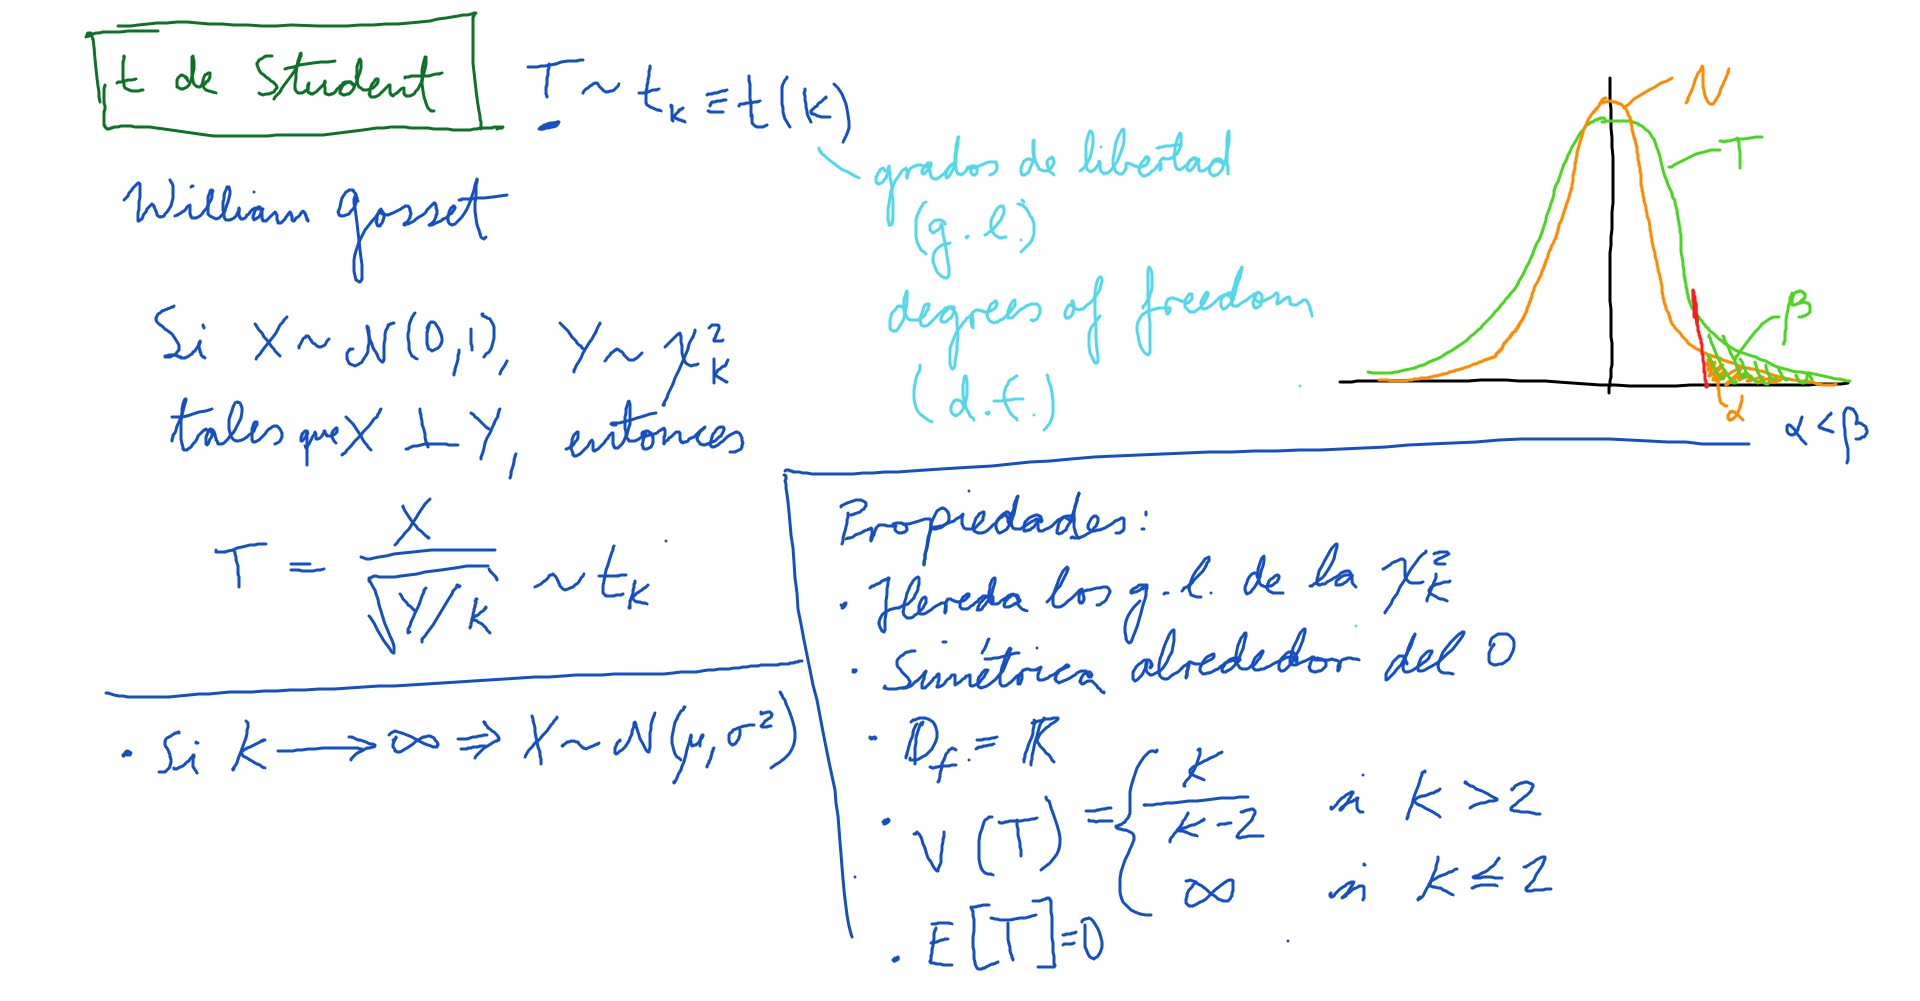 t de Student
T ~ t_k ≡ t(k)
grados de libertad
(g.l.)
degrees of freedom
(d.f.)
William Gosset
Si X ~ N(0,1), Y ~ χ²_k
tales que X ⊥ Y, entonces
T = X / √(Y/k) ~ t_k
• Si k ⟶ ∞ ⇒ X ~ N(μ, σ²)
N
T
β
α
α < β
Propiedades:
• Hereda los g.l. de la χ²_k
• Simétrica alrededor del 0
• D_f = ℝ
• V(T) = { k / (k-2) si k > 2
∞ si k ≤ 2
• E[T] = 0